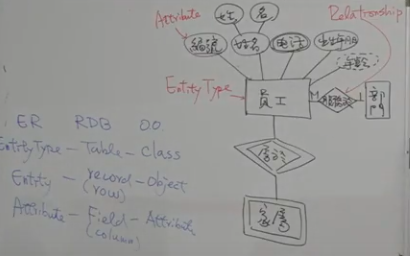 Attribute
姓
名
Relationship
编号
姓名
电话
出生年月
年龄
EntityType
员工
M
1
部门
ER RDB OO
EntityType - Table - Class
Entity - record - Object
(row)
Attribute - Field - Attribute
(column)